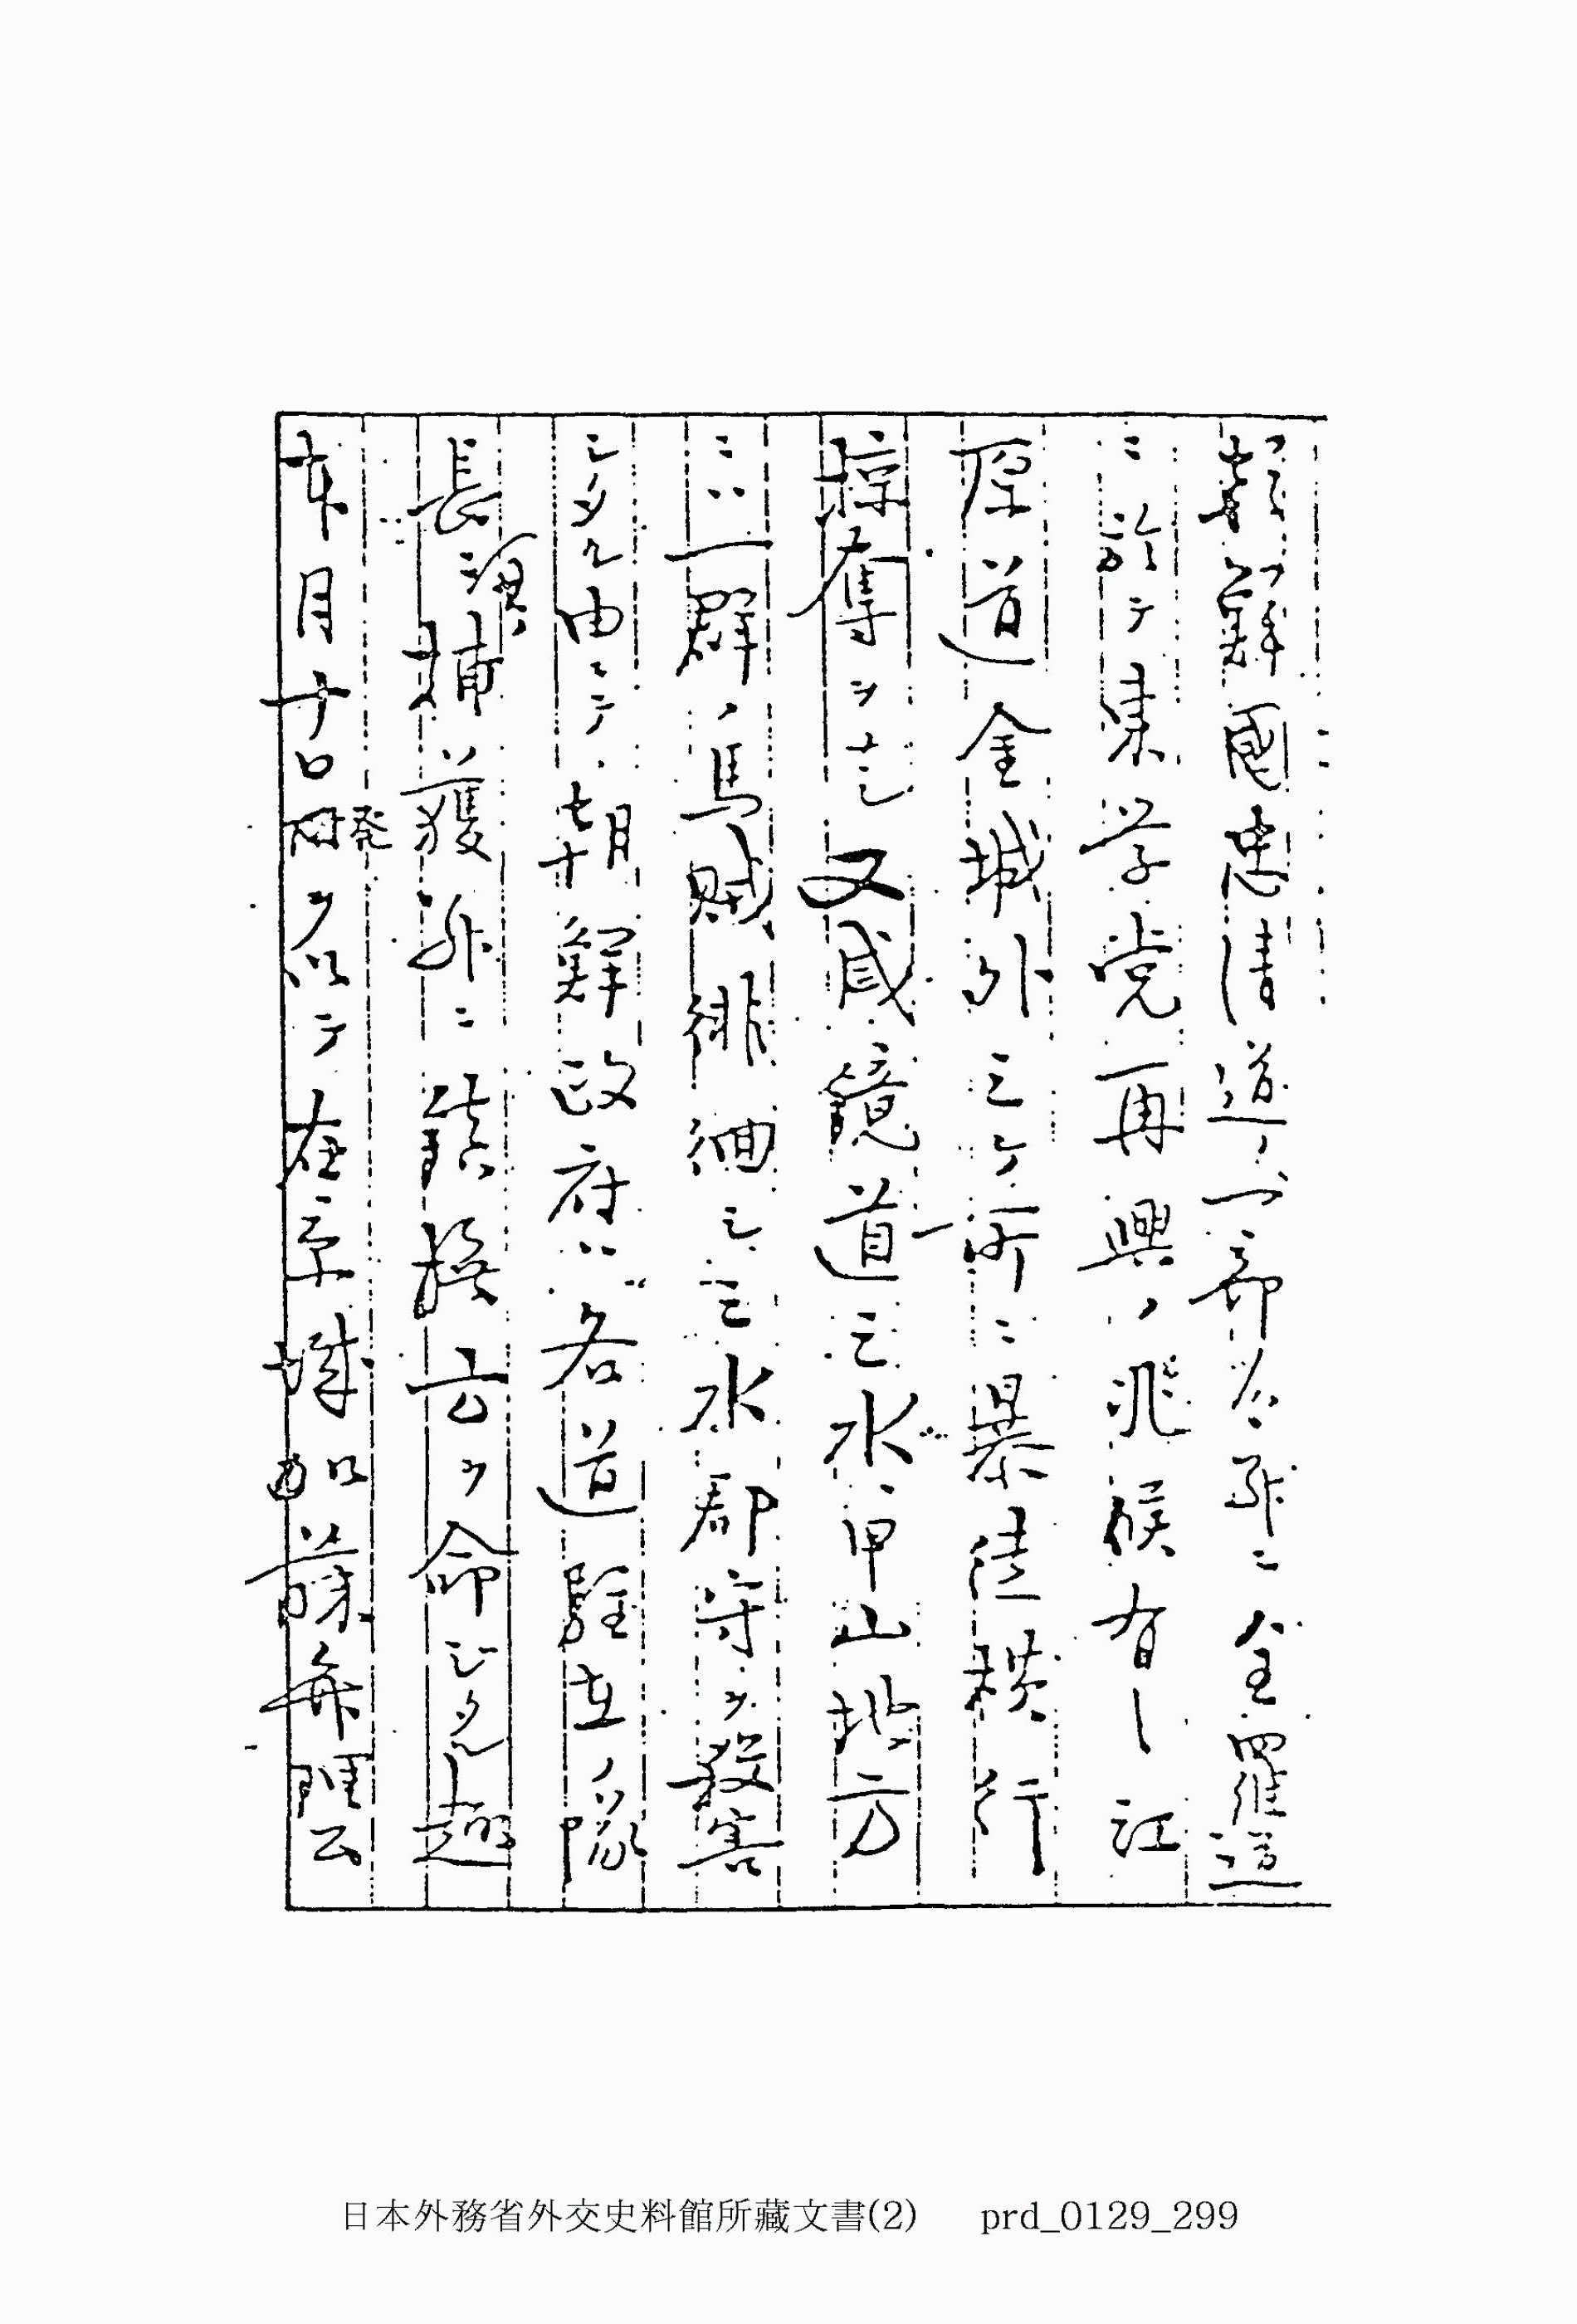 朝鮮國忠清道ノ一部及ヒ全羅道
ニ於テ東学党再興ノ兆候有リ江
原道金城外三ケ所ニ暴徒横行
掠奪ヲナシ又咸鏡道三水、甲山地方
ニハ一群ノ馬賊徘徊シ三水郡守ヲ殺害
シタル由ニテ朝鮮政府ハ各道駐在ノ隊
長ニ捕獲並ニ鎮撫方ヲ命シタル趣
本月十日発ヲ以テ在京城加藤弁理公
日本外務省外交史料館所藏文書(2) prd_0129_299